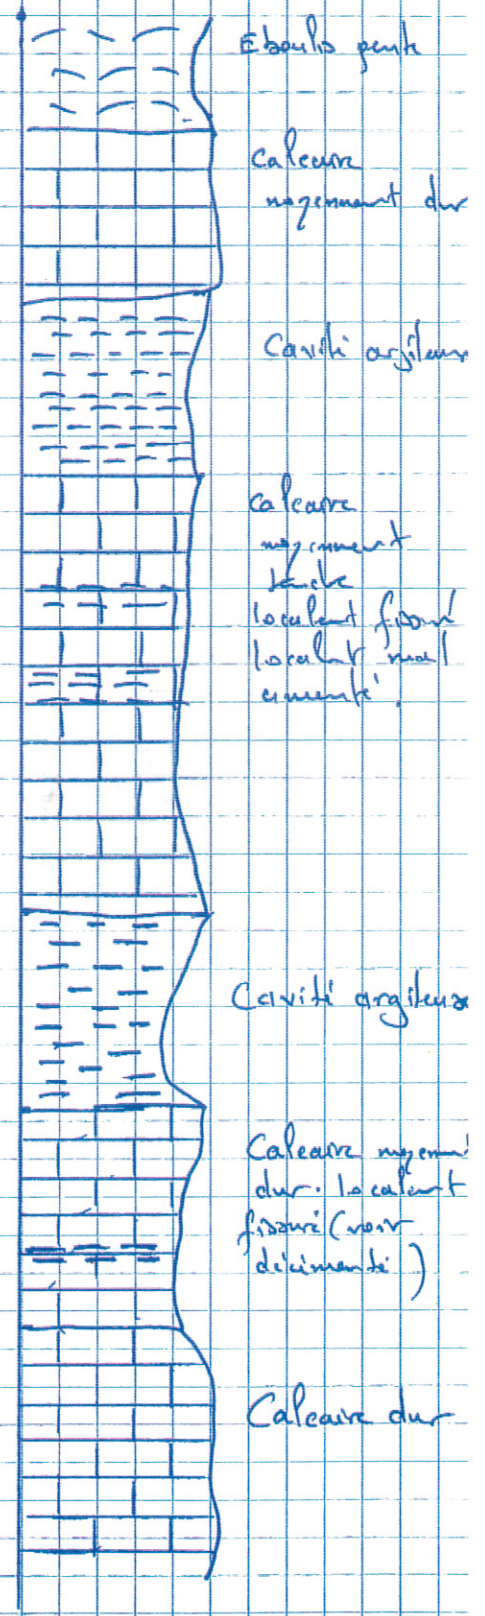 Eboulis pente
Calcaire
moyennement dur
Cavité argileus
Calcaire
moyennement
tendre
localemt fissuré
localemt mal
cimenté.
Cavité argileuse
Calcaire moyenn
dur. localemt
fissuré (voir
décimenté)
Calcaire dur